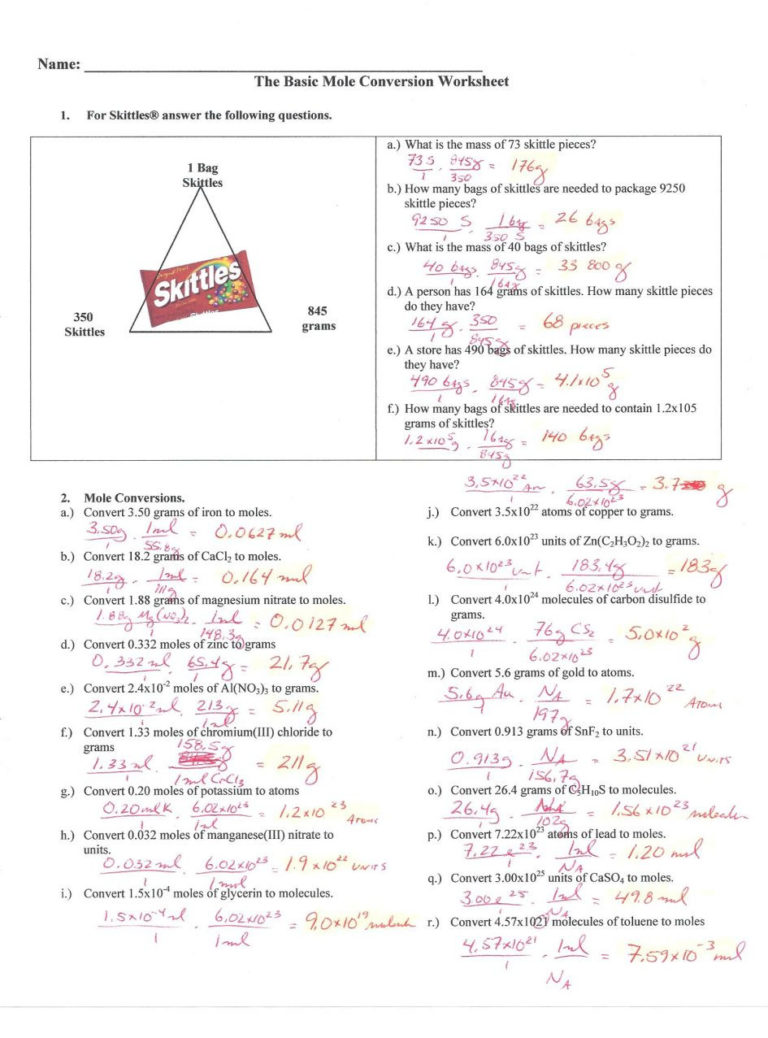 Name:
The Basic Mole Conversion Worksheet
1. For Skittles® answer the following questions.
1 Bag
Skittles
Original Fruit
Skittles
350
Skittles
845
grams
a.) What is the mass of 73 skittle pieces?
73 S / 1 · 845g / 350 = 176g
b.) How many bags of skittles are needed to package 9250
skittle pieces?
9250 S / 1 · 1 bag / 350 S = 26 bags
c.) What is the mass of 40 bags of skittles?
40 bags / 1 · 845g / 1 bag = 33 800 g
d.) A person has 164 grams of skittles. How many skittle pieces
do they have?
164 g / 1 · 350 / 845g = 68 pieces
e.) A store has 490 bags of skittles. How many skittle pieces do
they have?
490 bags / 1 · 845g / 1 bag = 4.1x10⁵ g
f.) How many bags of skittles are needed to contain 1.2x105
grams of skittles?
1.2 x10⁵g · 1 bag / 845g = 140 bags
2. Mole Conversions.
a.) Convert 3.50 grams of iron to moles.
3.50g / 1 · 1ml / 55.8g = 0.0627 ml
b.) Convert 18.2 grams of CaCl₂ to moles.
18.2g / 1 · 1ml / 111g = 0.164 mol
c.) Convert 1.88 grams of magnesium nitrate to moles.
1.88g Mg(NO₃)₂ / 1 · 1ml / 148.3g = 0.0127 ml
d.) Convert 0.332 moles of zinc to grams
0.332 ml / 1 · 65.4g / 1 = 21.7g
e.) Convert 2.4x10⁻² moles of Al(NO₃)₃ to grams.
2.4x10⁻²ml / 1 · 213g / 1ml = 5.11g
f.) Convert 1.33 moles of chromium(III) chloride to
grams
1.33 ml / 1 · 158.5g / 1ml CrCl₃ = 211g
g.) Convert 0.20 moles of potassium to atoms
0.20 ml K / 1 · 6.02x10²³ / 1ml = 1.2x10²³ Atoms
h.) Convert 0.032 moles of manganese(III) nitrate to
units.
0.032 ml / 1 · 6.02x10²³ / 1mol = 1.9x10²² units
i.) Convert 1.5x10⁻⁴ moles of glycerin to molecules.
1.5x10⁻⁴ml / 1 · 6.02x10²³ / 1ml = 9.0x10¹⁹ molecule
3.5x10²² Au / 1 · 63.5g / 6.02x10²³ = 3.7 g
j.) Convert 3.5x10²² atoms of copper to grams.
k.) Convert 6.0x10²³ units of Zn(C₂H₃O₂)₂ to grams.
6.0x10²³ unit / 1 · 183.4g / 6.02x10²³ unit = 183g
l.) Convert 4.0x10²⁴ molecules of carbon disulfide to
grams.
4.0x10²⁴ / 1 · 76g CS₂ / 6.02x10²³ = 5.0x10² g
m.) Convert 5.6 grams of gold to atoms.
5.6g Au / 1 · NA / 197g = 1.7x10²² Atoms
n.) Convert 0.913 grams of SnF₂ to units.
0.913g / 1 · NA / 156.7g = 3.51x10²¹ units
o.) Convert 26.4 grams of C₅H₁₀S to molecules.
26.4g / 1 · NA / 102g = 1.56x10²³ molecules
p.) Convert 7.22x10²³ atoms of lead to moles.
7.22 e²³ / 1 · 1ml / NA = 1.20 mol
q.) Convert 3.00x10²⁵ units of CaSO₄ to moles.
3.00e²⁵ / 1 · 1ml / NA = 49.8 mol
r.) Convert 4.57x1021 molecules of toluene to moles
4.57x10²¹ / 1 · 1ml / NA = 7.59x10⁻³ mol